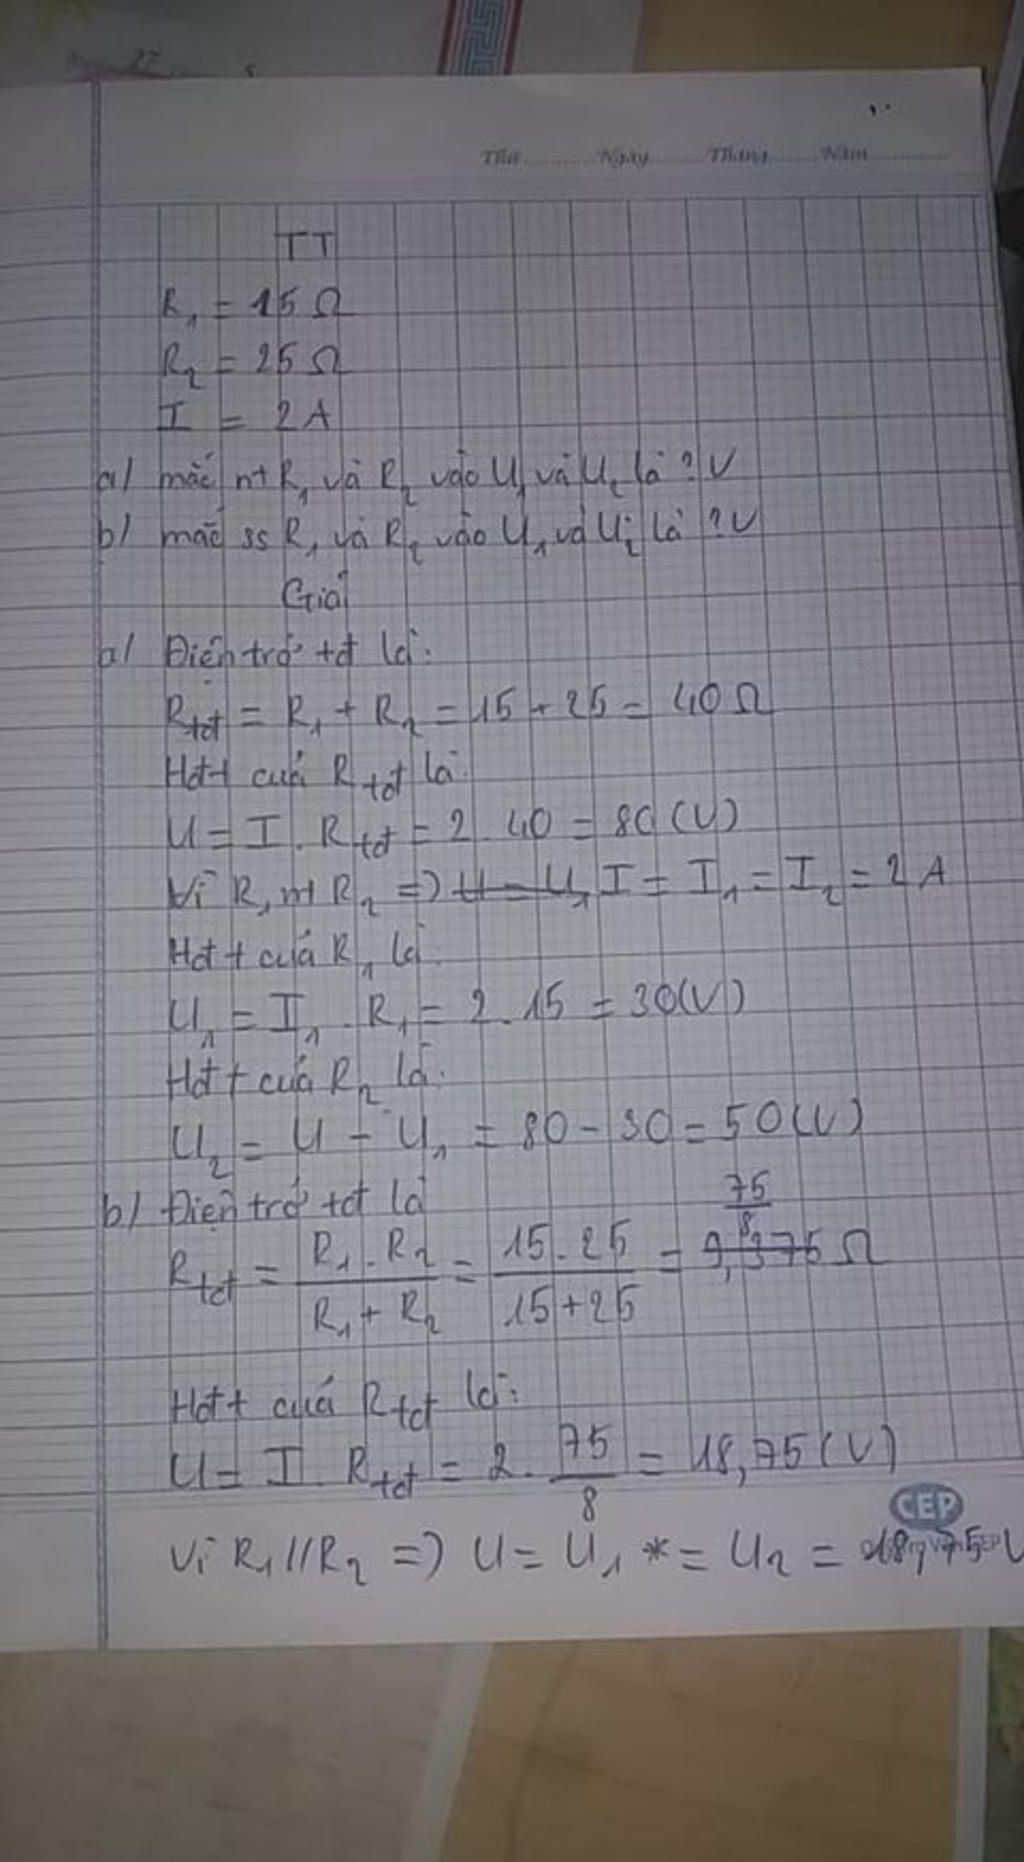 27
Thứ Ngày Tháng Năm
TT
R₁ = 15 Ω
R₂ = 25 Ω
I = 2 A
a/ mắc nt R₁ và R₂ vào U₁ và U₂ là ? V
b/ mắc ss R₁ và R₂ vào U₁ và U₂ là ? V
Giải
a/ Điện trở tđ là:
Rtđ = R₁ + R₂ = 15 + 25 = 40 Ω
Hđt của Rtđ là
U = I . Rtđ = 2 . 40 = 80 (V)
Vì R₁ nt R₂ => I = I₁ = I₂ = 2 A
Hđt của R₁ là
U₁ = I₁ . R₁ = 2 . 15 = 30 (V)
Hđt của R₂ là:
U₂ = U - U₁ = 80 - 30 = 50 (V)
b/ Điện trở tđ là
Rtđ = R₁ . R₂ / R₁ + R₂ = 15 . 25 / 15 + 25 = 75/8 Ω
Hđt của Rtđ là:
U = I . Rtđ = 2 . 75/8 = 18,75 (V)
CEP
Vì R₁ // R₂ => U = U₁ * = U₂ = 18,75 V